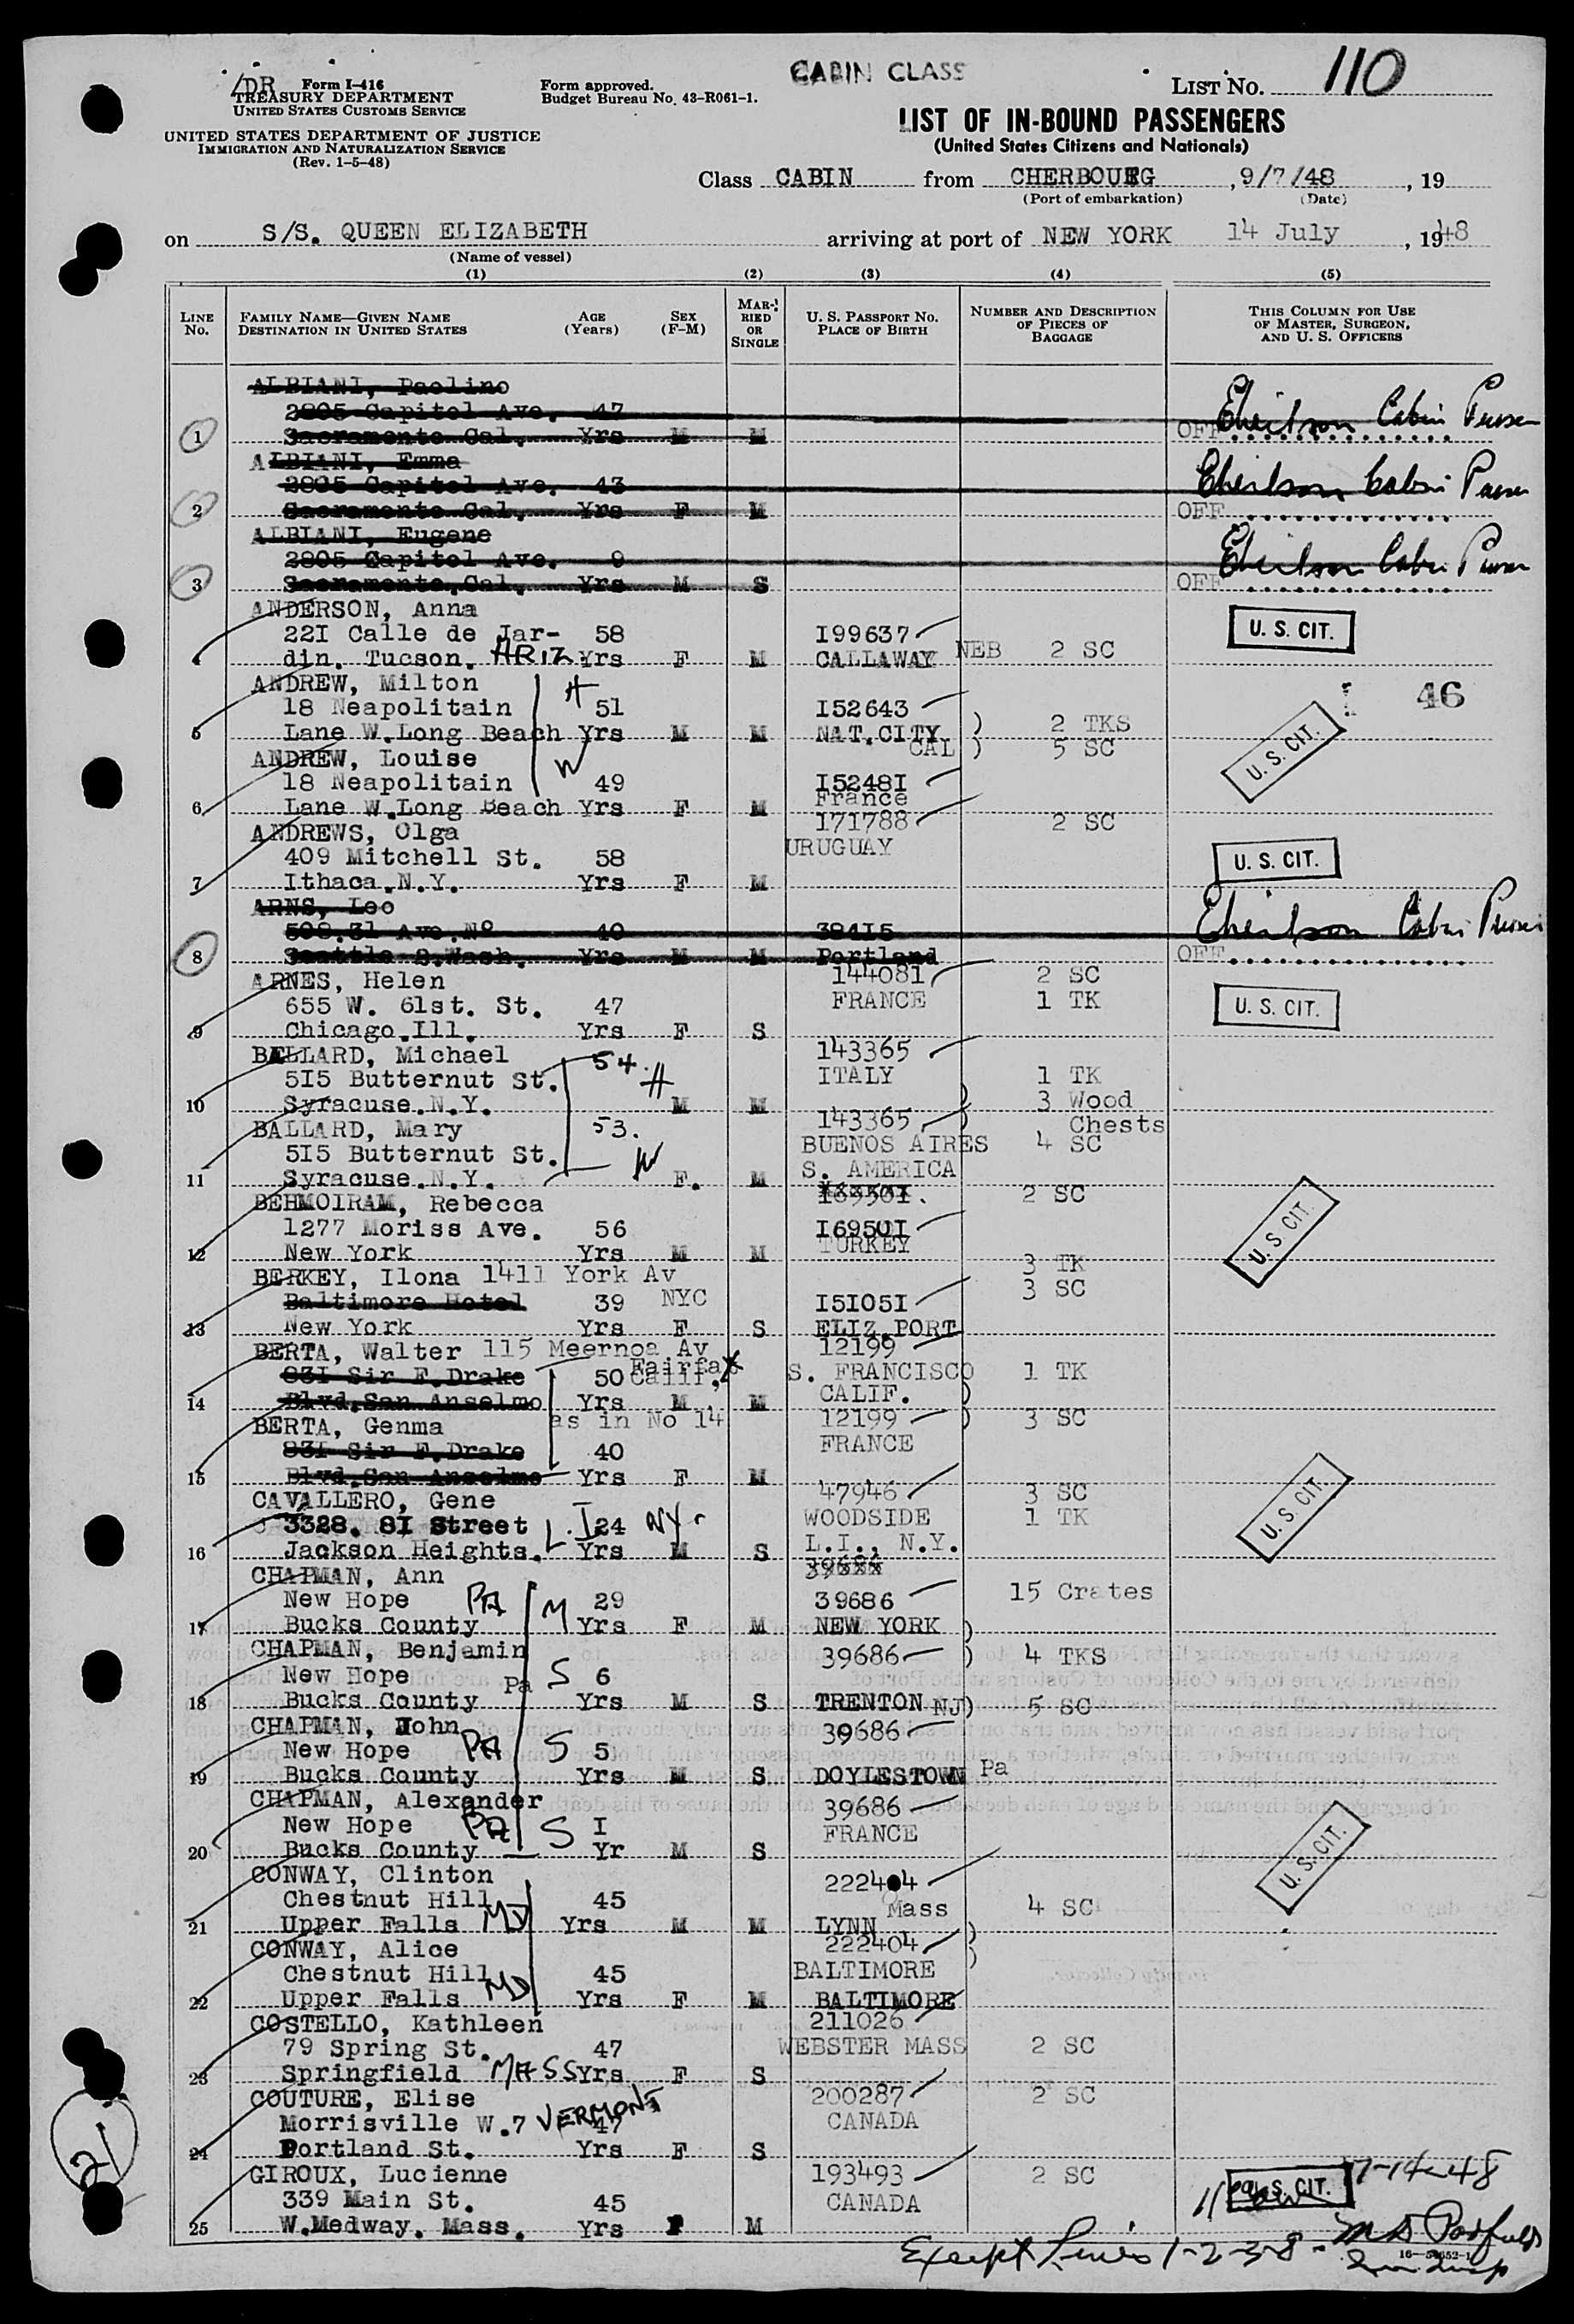 CABIN CLASS
LIST NO. 110
/DR Form I-416
TREASURY DEPARTMENT
UNITED STATES CUSTOMS SERVICE
Form approved.
Budget Bureau No. 43-R061-1.
UNITED STATES DEPARTMENT OF JUSTICE
IMMIGRATION AND NATURALIZATION SERVICE
(Rev. 1-5-48)
LIST OF IN-BOUND PASSENGERS
(United States Citizens and Nationals)
Class CABIN from CHERBOURG , 9/7/48 , 19
(Port of embarkation) (Date)
on S/S. QUEEN ELIZABETH arriving at port of NEW YORK 14 July , 1948
(Name of vessel)
(1) (2) (3) (4) (5)
LINE NO.
FAMILY NAME—GIVEN NAME
DESTINATION IN UNITED STATES
AGE (Years)
SEX (F-M)
MARRIED OR SINGLE
U. S. PASSPORT NO.
PLACE OF BIRTH
NUMBER AND DESCRIPTION OF PIECES OF BAGGAGE
THIS COLUMN FOR USE OF MASTER, SURGEON, AND U. S. OFFICERS
ALBIANI, Paolino
2805 Capitol Ave. 47
1 Sacramento Cal. Yrs M M OFF Cabin Purser
ALBIANI, Emma
2805 Capitol Ave. 43
2 Sacramento Cal. Yrs F M OFF Cabin Purser
ALBIANI, Eugene
2805 Capitol Ave. 9
3 Sacramento, Cal. Yrs M S OFF Cabin Purser
ANDERSON, Anna
22I Calle de Jar- 58 I99637 U. S. CIT.
4 din. Tucson. ARIZ. Yrs F M CALLAWAY NEB 2 SC
ANDREW, Milton H 46
18 Neapolitain 51 I52643
5 Lane W.Long Beach Yrs M M NAT.CITY ) 2 TKS
CAL ) 5 SC
ANDREW, Louise W U. S. CIT.
18 Neapolitain 49 I5248I
France
6 Lane W.Long Beach Yrs F M
ANDREWS, Olga 171788 2 SC
409 Mitchell St. 58 URUGUAY U. S. CIT.
7 Ithaca.N.Y. Yrs F M
ARNS, Leo
508.31 Ave.Nº 40 384I5 Cabin Purser
8 Seattle 8.Wash. Yrs M M Portland OFF
ARNES, Helen 144081 2 SC
655 W. 61st. St. 47 FRANCE 1 TK U. S. CIT.
9 Chicago.Ill. Yrs F S
BALLARD, Michael 54. 143365
5I5 Butternut St. H ITALY 1 TK
10 Syracuse.N.Y. M M ) 3 Wood Chests
BALLARD, Mary 53. 143365 )
5I5 Butternut St. W BUENOS AIRES 4 SC
11 Syracuse.N.Y. F. M S. AMERICA
BEHMOIRAM, Rebecca 2 SC
1277 Moriss Ave. 56 I6950I U. S. CIT.
12 New York Yrs M M TURKEY
BERKEY, Ilona 1411 York Av 3 TK
Baltimore Hotel 39 NYC I5I05I 3 SC
13 New York Yrs F S ELIZ.PORT
BERTA, Walter 115 Meernoa Av 12199
831 Sir F.Drake 50 Fairfax Calif, S. FRANCISCO 1 TK
14 Blvd.San Anselmo Yrs M M CALIF. )
BERTA, Genma as in No 14 12199 ) 3 SC
831 Sir F.Drake 40 FRANCE
15 Blvd.San Anselmo Yrs F M
CAVALLERO, Gene 47946 3 SC U. S. CIT.
3328. 8I Street L.I 24 NY. WOODSIDE 1 TK
16 Jackson Heights. Yrs M S L.I., N.Y.
CHAPMAN, Ann
New Hope PA M 29 39686 15 Crates
17 Bucks County Yrs F M NEW YORK )
CHAPMAN, Benjamin 39686 ) 4 TKS
New Hope Pa S 6
18 Bucks County Yrs M S TRENTON NJ ) 5 SC
CHAPMAN, John 39686
New Hope PA S 5
19 Bucks County Yrs M S DOYLESTOWN Pa
CHAPMAN, Alexander 39686
New Hope PA S I FRANCE U. S. CIT.
20 Bucks County Yr M S
CONWAY, Clinton 222404
Chestnut Hill 45 Mass 4 SC
21 Upper Falls MD Yrs M M LYNN )
CONWAY, Alice 222404 )
Chestnut Hill 45 BALTIMORE
22 Upper Falls MD Yrs F M BALTIMORE
COSTELLO, Kathleen 211026
79 Spring St. 47 WEBSTER MASS 2 SC
23 Springfield MASS Yrs F S
COUTURE, Elise 200287 2 SC
Morrisville W.7 VERMONT 47 CANADA
24 Portland St. Yrs F S
GIROUX, Lucienne 193493 2 SC 7-14-48
339 Main St. 45 CANADA U. S. CIT.
25 W.Medway. Mass. Yrs F M
21
Except Lines 1-2-3-8-